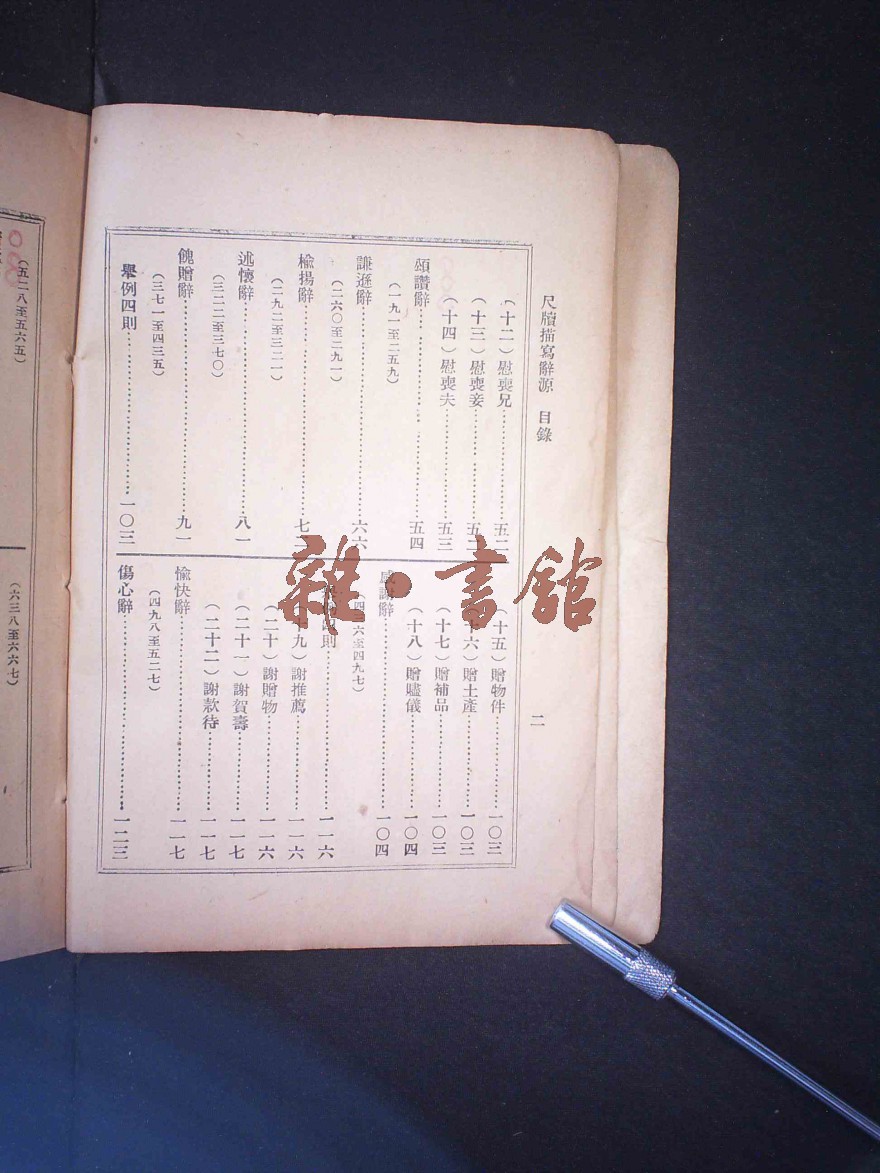 尺牘描寫辭源 目錄
二
（十二）慰喪兄……五二
（十三）慰喪妾……五二
（十四）慰喪夫……五三
頌讚辭……五四
（一九一至二五九）
謙遜辭……六六
（二六〇至二九一）
檢揚辭……七
（二九二至三二一）
述懷辭……八一
（三二二至三七〇）
餽贈辭……九一
（三七一至四三五）
舉例四則……一〇三
十五）贈物件……一〇三
十六）贈土產……一〇三
（十七）贈補品……一〇三
（十八）贈贐儀……一〇四
感謝辭……一〇四
（四三六至四九七）
四則……一一六
十九）謝推薦……一一六
（二十）謝贈物……一一六
（二十一）謝賀壽……一一七
（二十二）謝款待……一一七
愉快辭……一一七
（四九八至五二七）
傷心辭……一二三
（五二八至五六五）
（六三八至六六七）
雜·書館